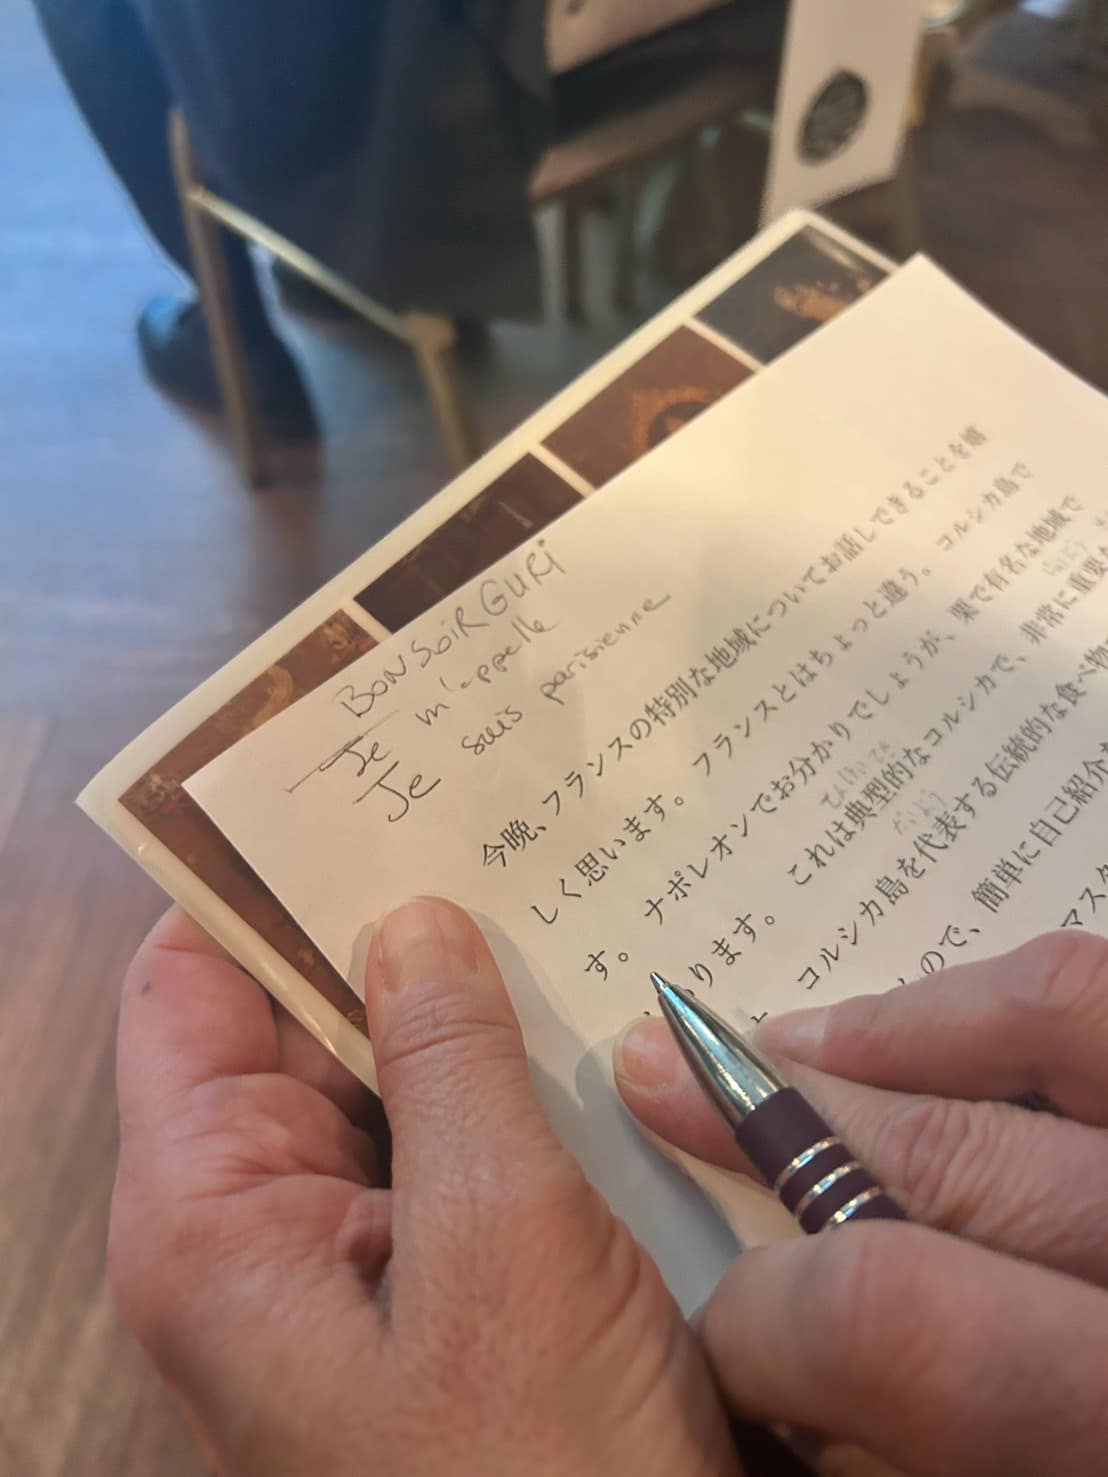 BONSOIR GURI
Je m'appelle
Je suis parisienne
今晩、フランスの特別な地域についてお話しできることを嬉
しく思います。フランスとはちょっと違う。コルシカ島で
す。ナポレオンでお分かりでしょうが、栗で有名な地域で
ります。これは典型的なコルシカで、非常に重要な
てんけいてき
コルシカ島を代表する伝統的な食べ物
ので、簡単に自己紹介
マスタ